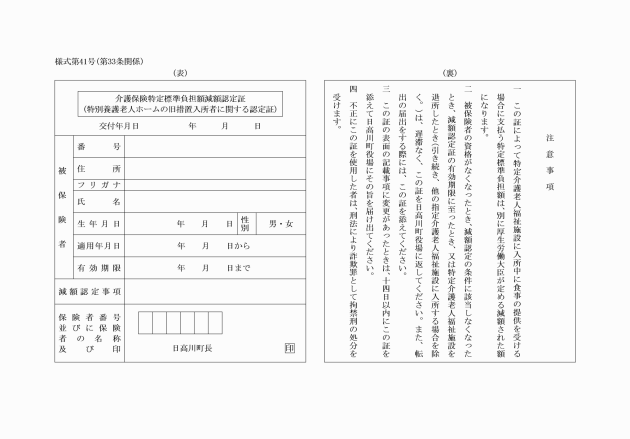 様式第41号(第33条関係)
(表)
介護保険特定標準負担額減額認定証
(特別養護老人ホームの旧措置入所者に関する認定証)
交付年月日 年 月 日
被保険者
番号
住所
フリガナ
氏名
生年月日 年 月 日 性別 男・女
適用年月日 年 月 日から
有効期限 年 月 日まで
減額認定事項
保険者番号
並びに保険
者の名称
及び印
日高川町長 印
(裏)
注意事項
一 この証によって特定介護老人福祉施設に入所中に食事の提供を受ける
場合に支払う特定標準負担額は、別に厚生労働大臣が定める減額された額
になります。
二 被保険者の資格がなくなったとき、減額認定の条件に該当しなくなった
とき、減額認定証の有効期限に至ったとき、又は特定介護老人福祉施設を
退所したとき(引き続き、他の指定介護老人福祉施設に入所する場合を除
く。)は、遅滞なく、この証を日高川町役場に返してください。また、転
出の届出をする際には、この証を添えてください。
三 この証の表面の記載事項に変更があったときは、十四日以内にこの証を
添えて日高川町役場にその旨を届け出てください。
四 不正にこの証を使用した者は、刑法により詐欺罪として拘禁刑の処分を
受けます。